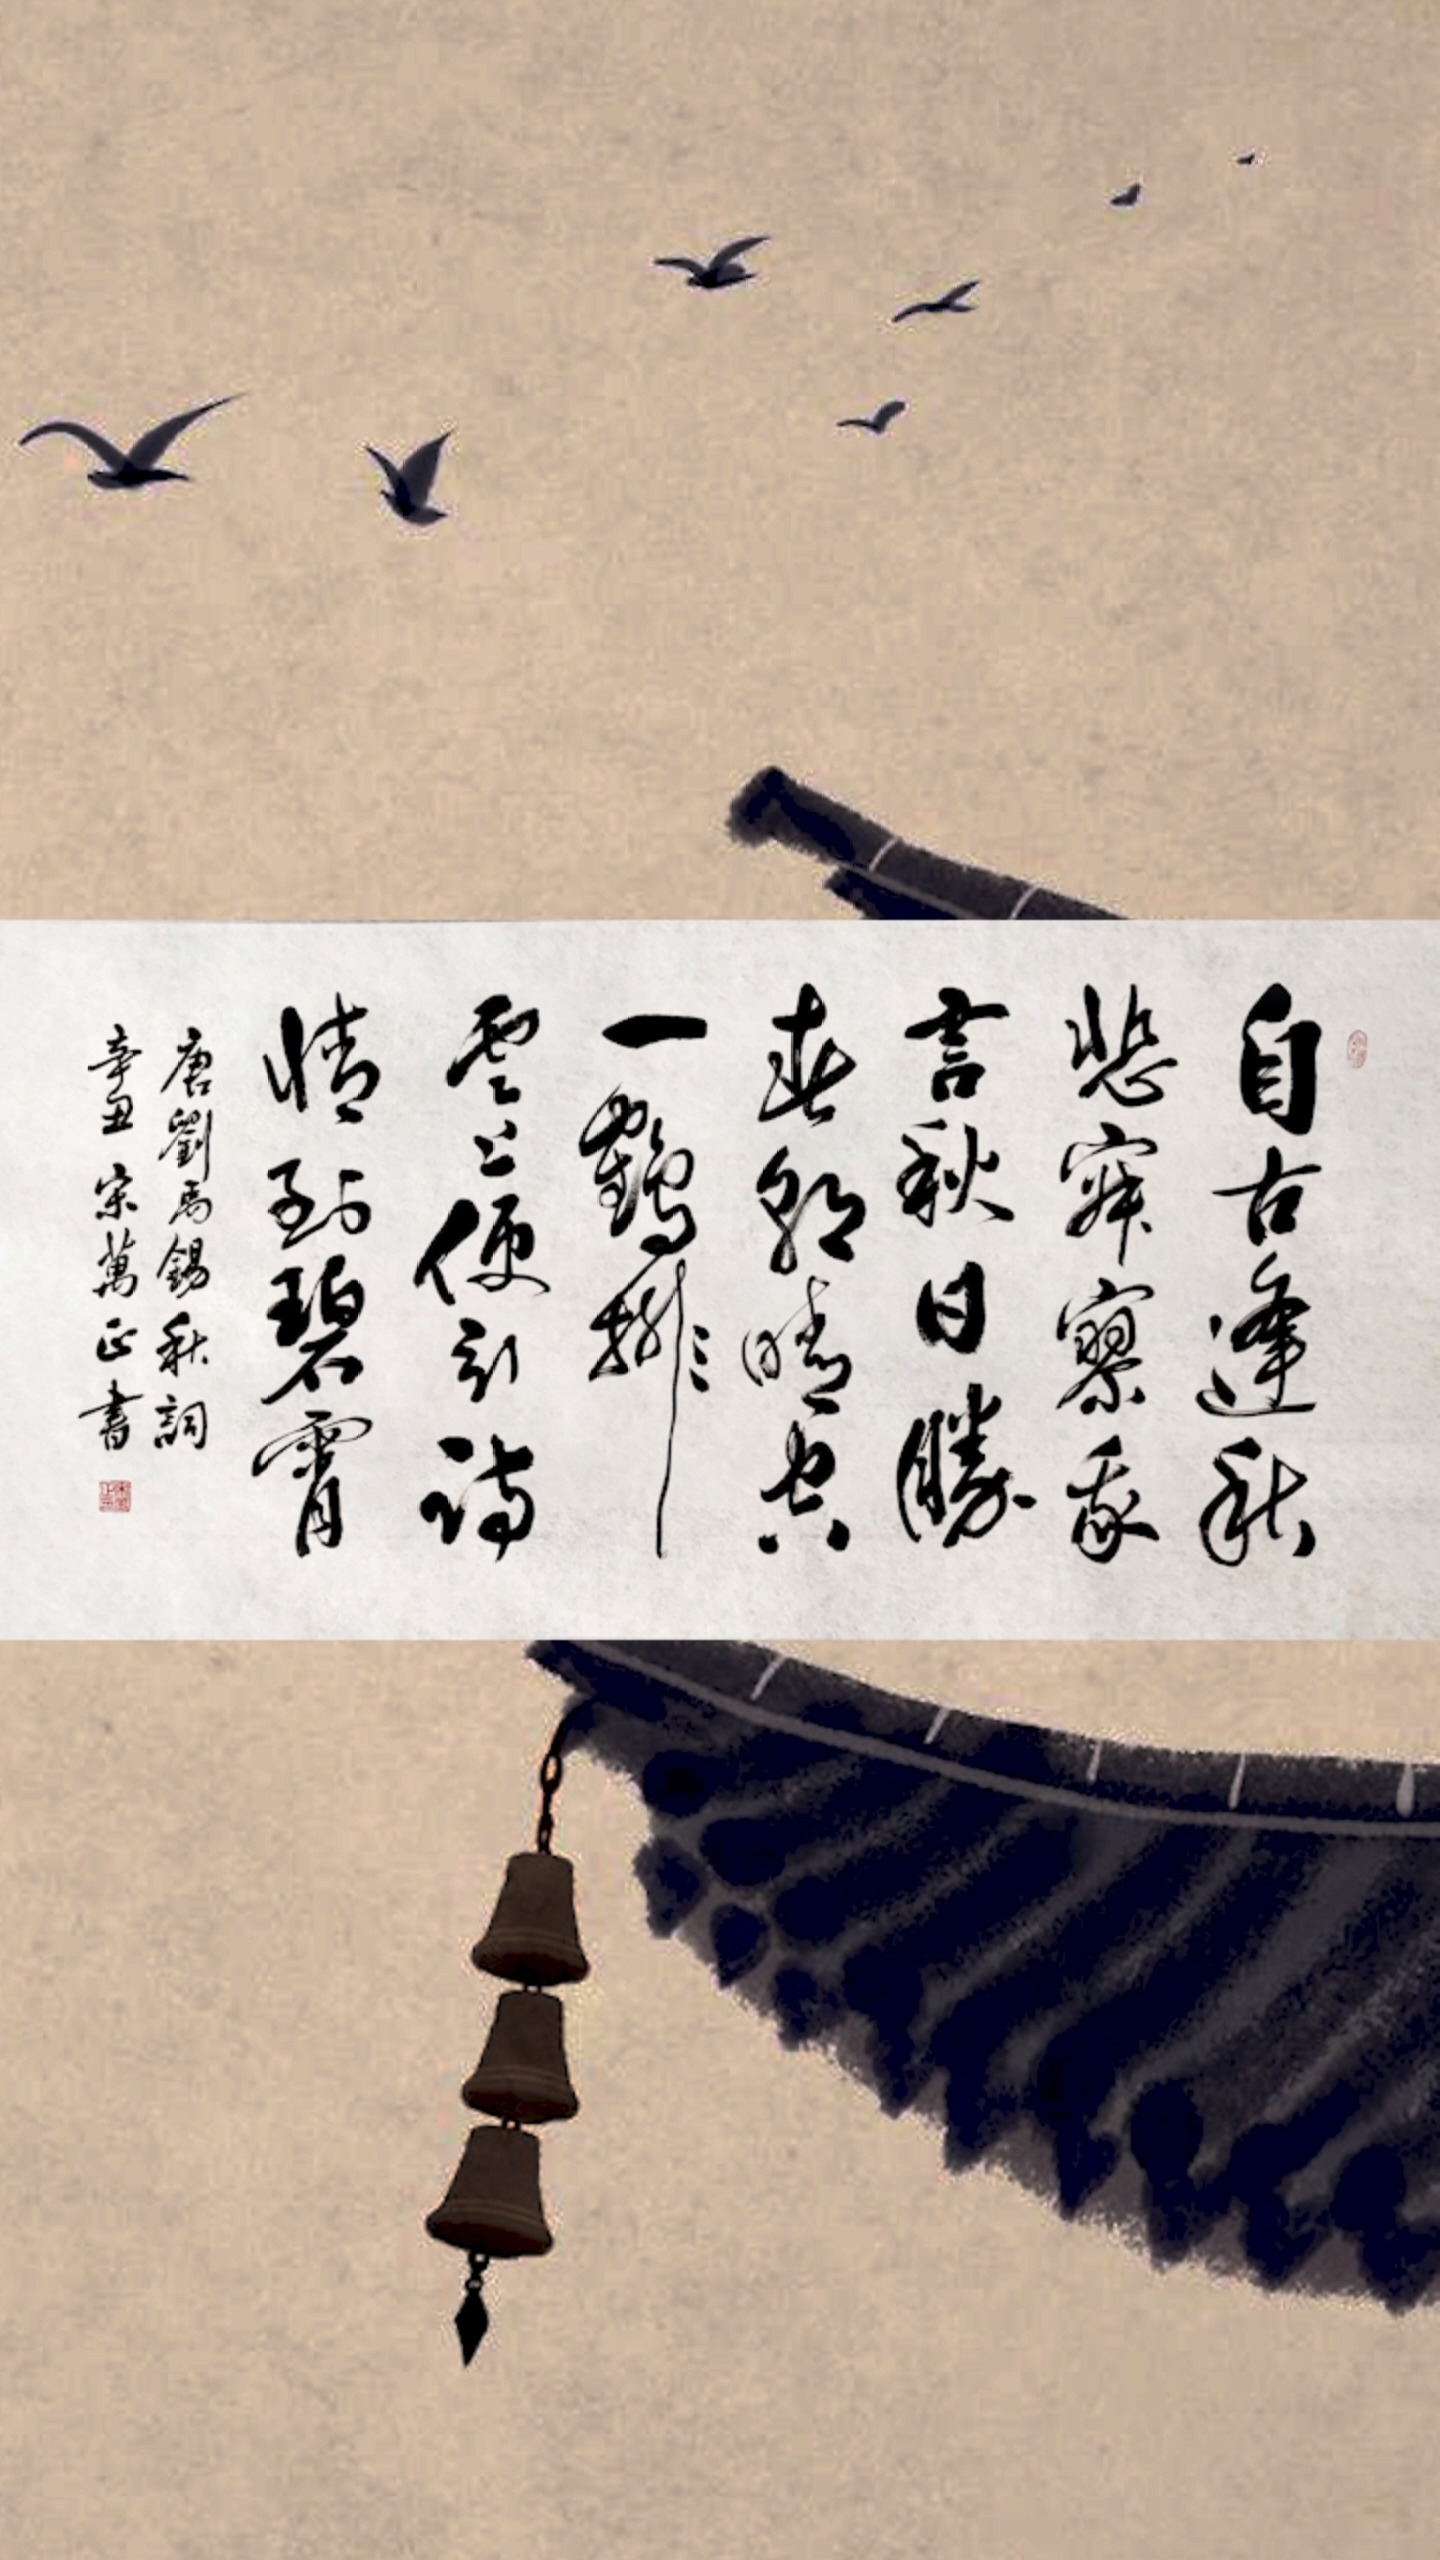 自古逢秋
悲寂寥我
言秋日勝
春朝晴空
一鶴排
雲上便引詩
情到碧霄
唐劉禹錫秋詞
辛丑宋萬正書